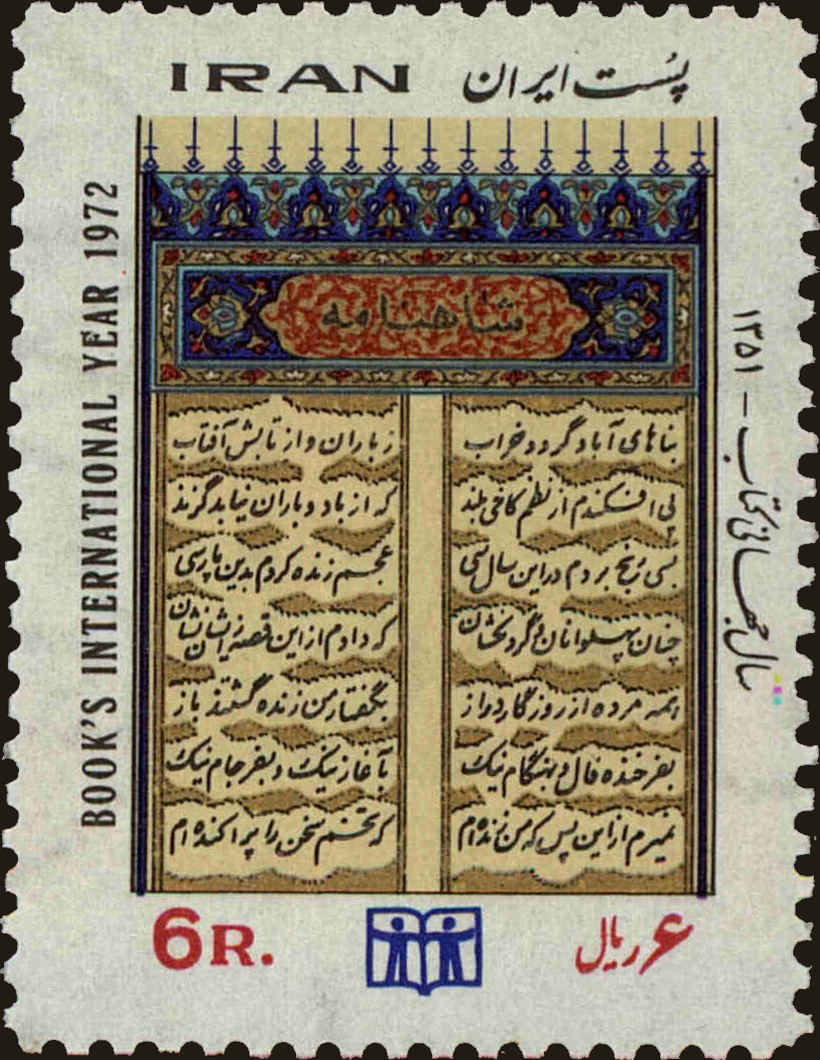 IRAN پُست ایران
BOOK'S INTERNATIONAL YEAR 1972
سال جهانی کتاب - ۱۳۵۱
شاهنامه
بناهای آباد گردد خراب ز باران و از تابش آفتاب
پی افکندم از نظم کاخی بلند که از باد و باران نیابد گزند
بسی رنج بردم در این سال سی عجم زنده کردم بدین پارسی
چنان پهلوانان و گردنکشان که دادم از این قصه زایشان نشان
همه مرده از روزگار دراز بگفتار من زنده گشتند باز
بفرخنده فال و بهنگام نیک بآغاز نیک و بفرجام نیک
نمیرم از این پس که من زنده‌ام که تخم سخن را پراکنده‌ام
6R. ۶ ریال